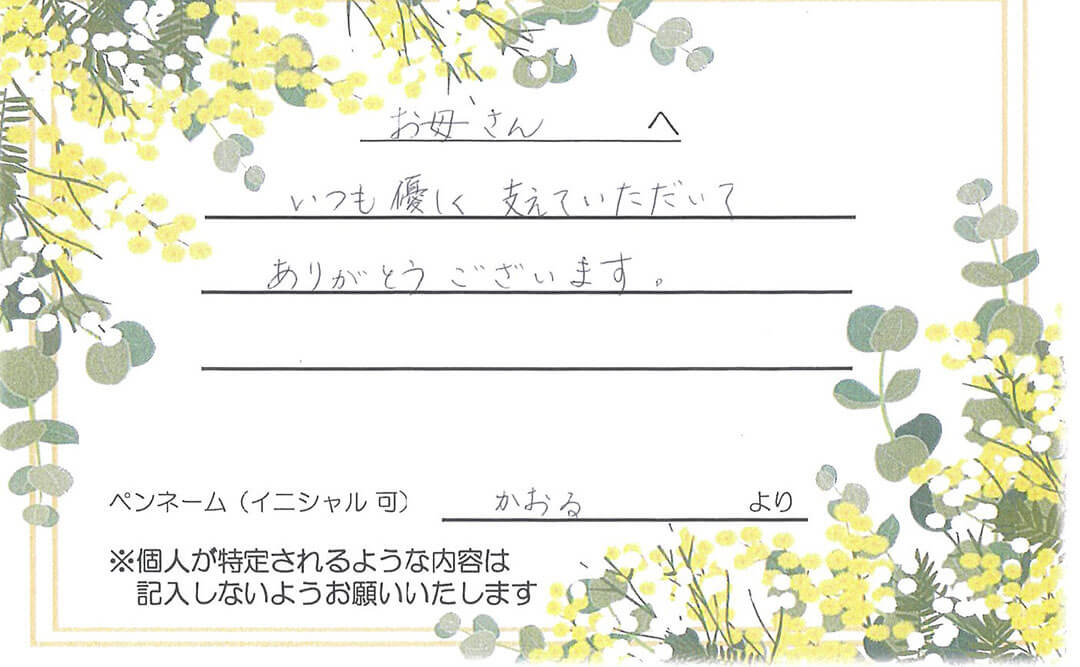 お母さん へ
いつも優しく 支えていただいて
ありがとうございます。
ペンネーム（イニシャル 可） かおる より
※個人が特定されるような内容は
記入しないようお願いいたします